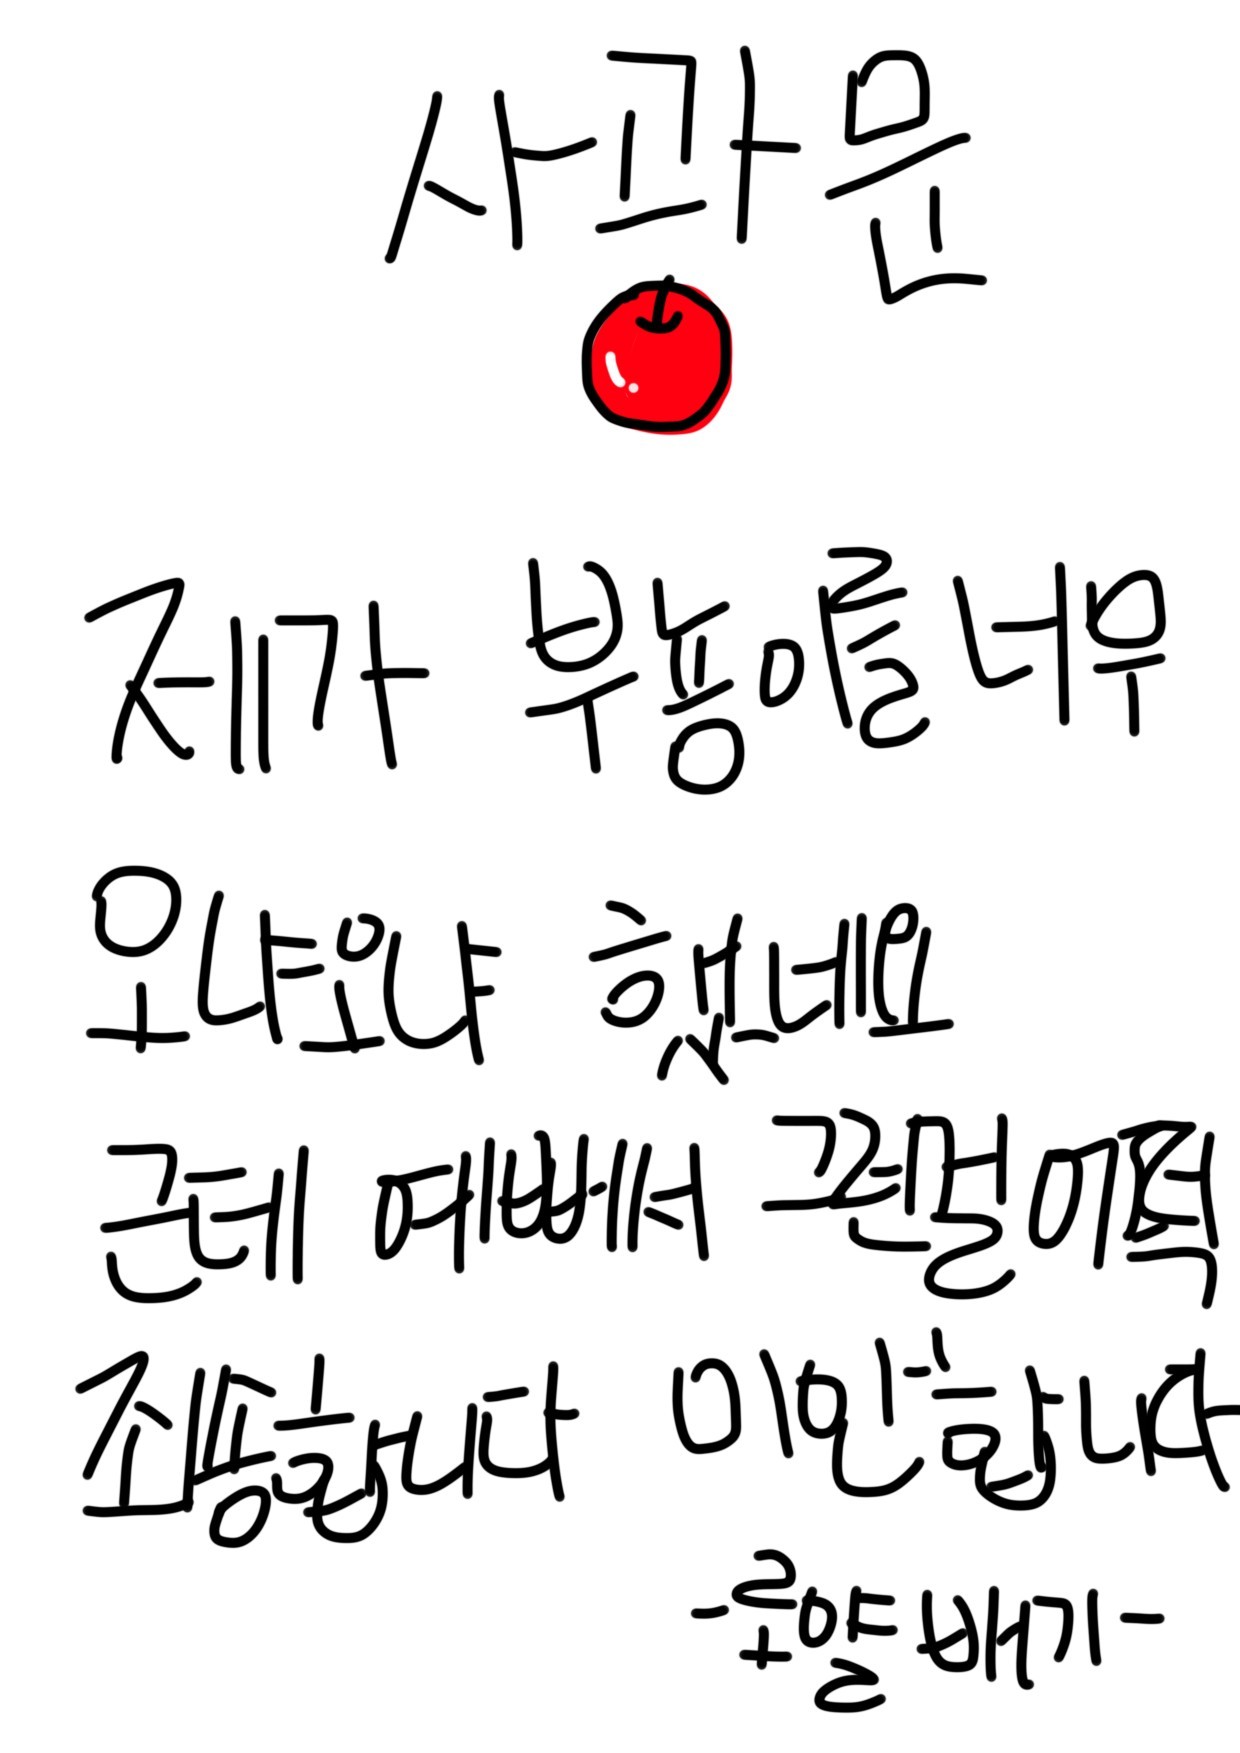 사과문
제가 부농이를 너무
오냐오냐 했네요
근데 예뻐서
죄송합니다 미안합니다
-로얄배기-